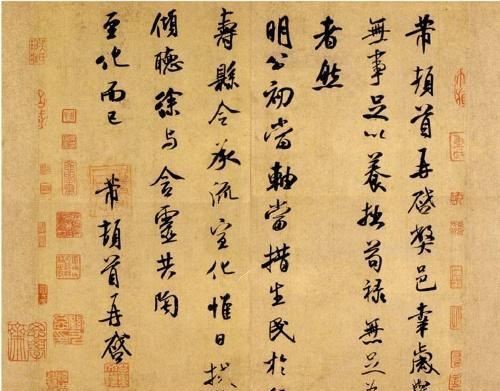 芾頓首再啓弊邑幸歲
無事足以養拙苟祿無足
者然
明公初當軸當措生民於
壽縣令承流宣化惟日拭
傾聽徐与含靈共陶
至化而已 芾頓首再啓